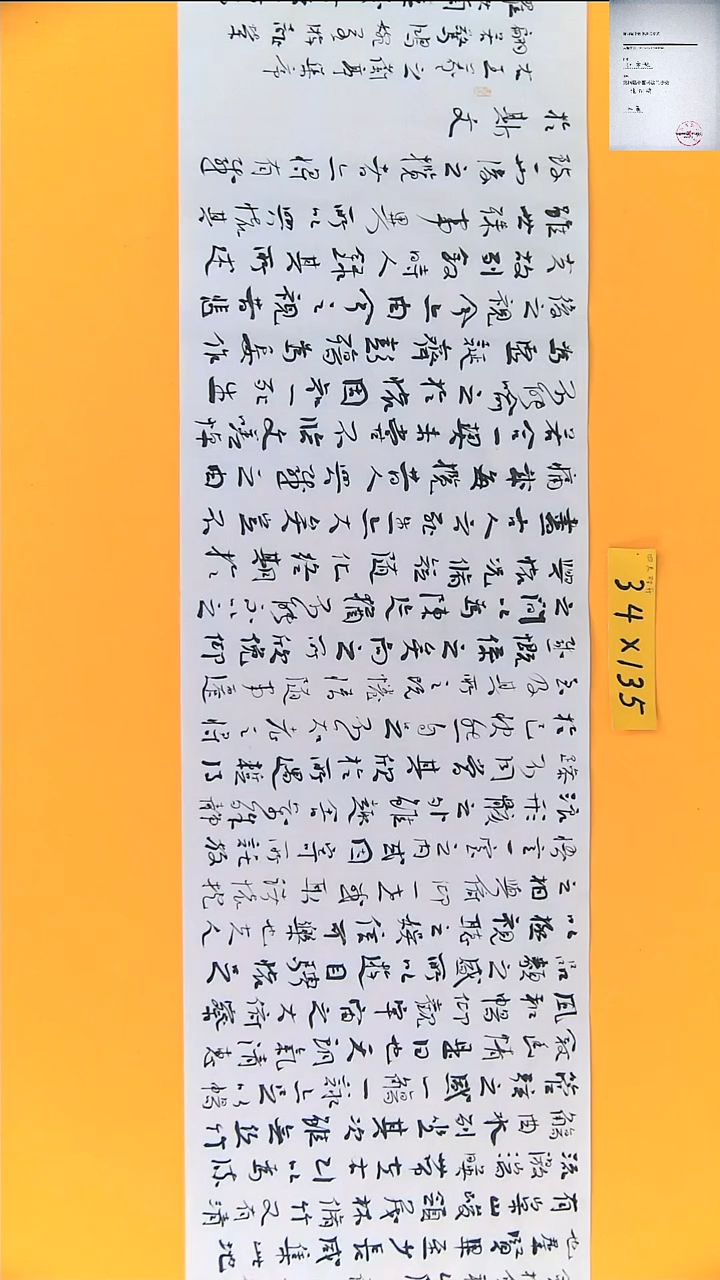 也羣賢畢至少長咸集此地
有崇山峻領茂林脩竹又有清
流激湍暎帶左右引以為流
觴曲水列坐其次雖無絲竹
管弦之盛一觴一詠亦足以暢
敘幽情是日也天朗氣清惠
風和暢仰觀宇宙之大俯察
品類之盛所以遊目騁懷足
以極視聽之娛信可樂也夫人
之相與俯仰一世或取諸懷抱
悟言一室之內或因寄所託放
浪形骸之外雖趣舍萬殊靜
躁不同當其欣於所遇暫得
於己快然自足不知老之將
至及其所之既惓情隨事遷
感慨係之矣向之所欣俛仰
之間以為陳迹猶不能不以之
興懷況脩短隨化終期於
盡古人云死生亦大矣豈不
痛哉每攬昔人興感之由
若合一契未嘗不臨文嗟悼
不能喻之於懷固知一死生
為虛誕齊彭殤為妄作
後之視今亦由今之視昔悲
夫故列敘時人錄其所述
雖世殊事異所以興懷其
致一也後之攬者亦將有感
於斯文
翩若驚鴻婉若游
34X135